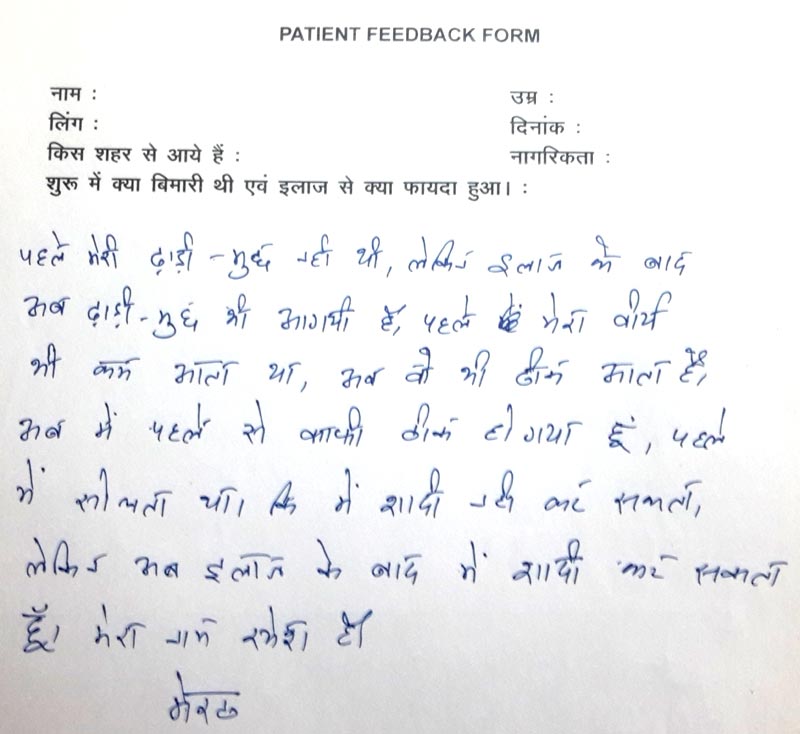 PATIENT FEEDBACK FORM
नाम : उम्र :
लिंग : दिनांक :
किस शहर से आये हैं : नागरिकता :
शुरू में क्या बिमारी थी एवं इलाज से क्या फायदा हुआ। :
पहले मेरी ढ़ाड़ी - मुछं नही थी, लेकिन इलाज के बाद
अब ढ़ाड़ी - मुछं भी आगयी हैं, पहले मेरा वीर्य
भी कम आता था, अब वो भी ठीक आता हैं,
अब में पहले से काफी ठीक हो गया हूं, पहले
में सोचता था। कि में शादी नही कर सकता,
लेकिन अब इलाज के बाद में शादी कर सकता
हूँ। मेरा नाम रमेश हैं।
मेरठ